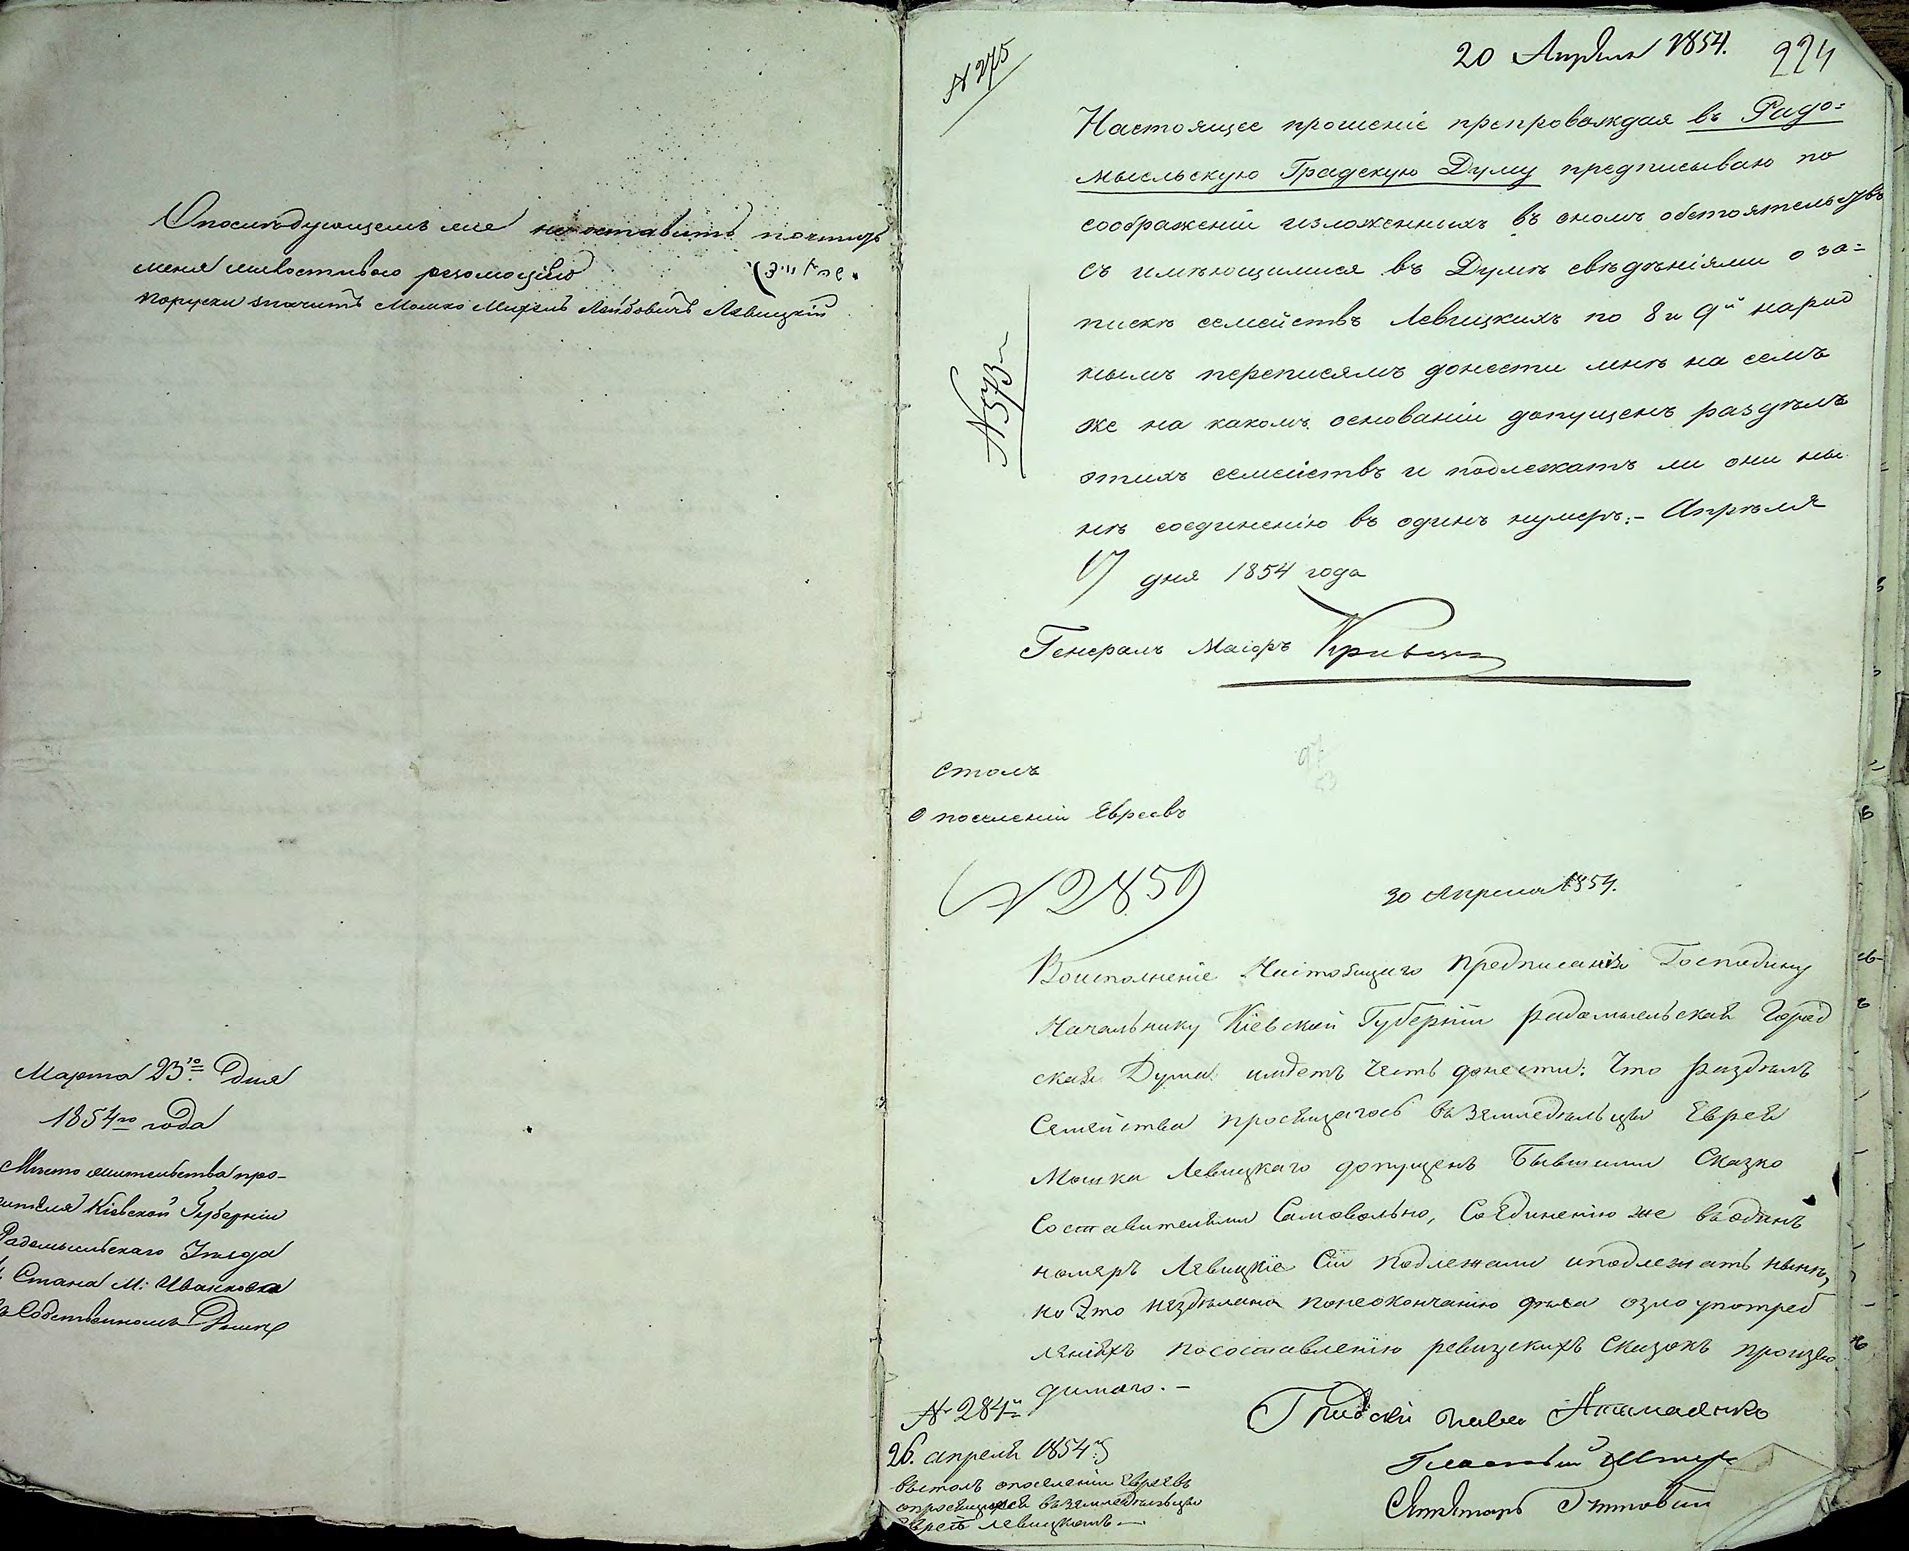 О послѣдующемъ мне не оставить почтить
меня милостивою резолюціею
Поруски значитъ Мошко Михель Лейбовичъ Левицкій
Марта 23го. Дня
1854го года
Место жительства про-
сителя Кіевской Губерніи
Радомысльскаго Уезда
Стана М: Иванкова
въ Собственномъ Доме
№ 275
20 Апреля 1854.
224
Настоящее прошеніе препровождая въ Радо=
мысльскую Градскую Думу предписываю по
соображеніи изложенныхъ въ ономъ обстоятельствъ
съ имѣющимися въ Думѣ свѣдѣніями о за=
пискѣ семействъ Левицкихъ по 8 и 9й народ
нымъ переписямъ донести мнѣ на семъ
же на какомъ основаніи допущенъ раздѣлъ
этихъ семействъ и подлежатъ ли они ны
нѣ соединенію въ одинъ нумеръ:- Апрѣля
17 дня 1854 года
№ 573
Генералъ Маіоръ Кривцо
Столъ
О поселеніи Евреевъ
№ 2859
30 Апреля 1854.
Воисполненіе Настоящаго предписанія Господину
Начальнику Кіевской Губерніи Радомысльская Город
ская Дума имѣетъ честь донести: Что раздѣлъ
Семейства просящагось въ Земледѣльцы Еврея
Мошка Левицкаго допущенъ Бывшими Сказко
Составителями Самовольно, Соединенію же въ одинъ
номеръ Левицкіе Сіи подлежали и подлежатъ нынѣ,
но Это нездѣлано понеокончанію дѣла о злоупотреб
леніяхъ посоставленію ревизскихъ Сказокъ произво
димаго.-
№ 284й
26. апреля 1854
въ столъ опоселеніи Евреевъ
опросящемся въ Земледѣльцы
Еврея Левицкомъ —
Градскій Глава Атамаенко
Гласный
Секретарь